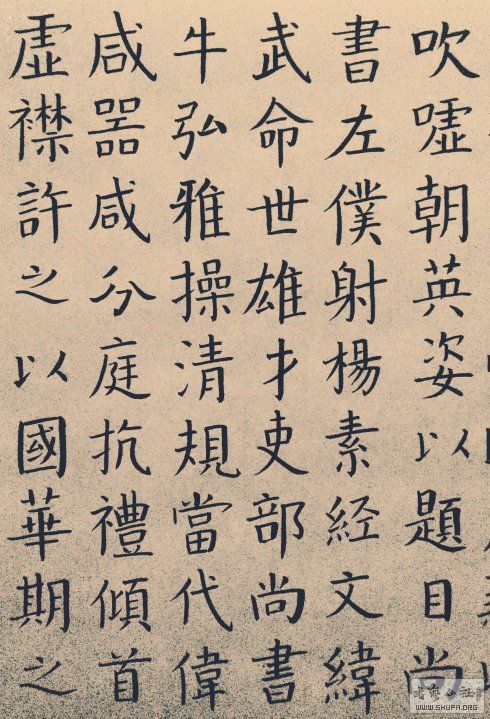 吹嘘朝英姿以題目尚
書左僕射楊素経文緯
武命世雄才吏部尚書
牛弘雅操清規當代偉
咸器咸分庭抗禮傾首
虛襟許之以國華期之
WWW.SHUFA.ORG